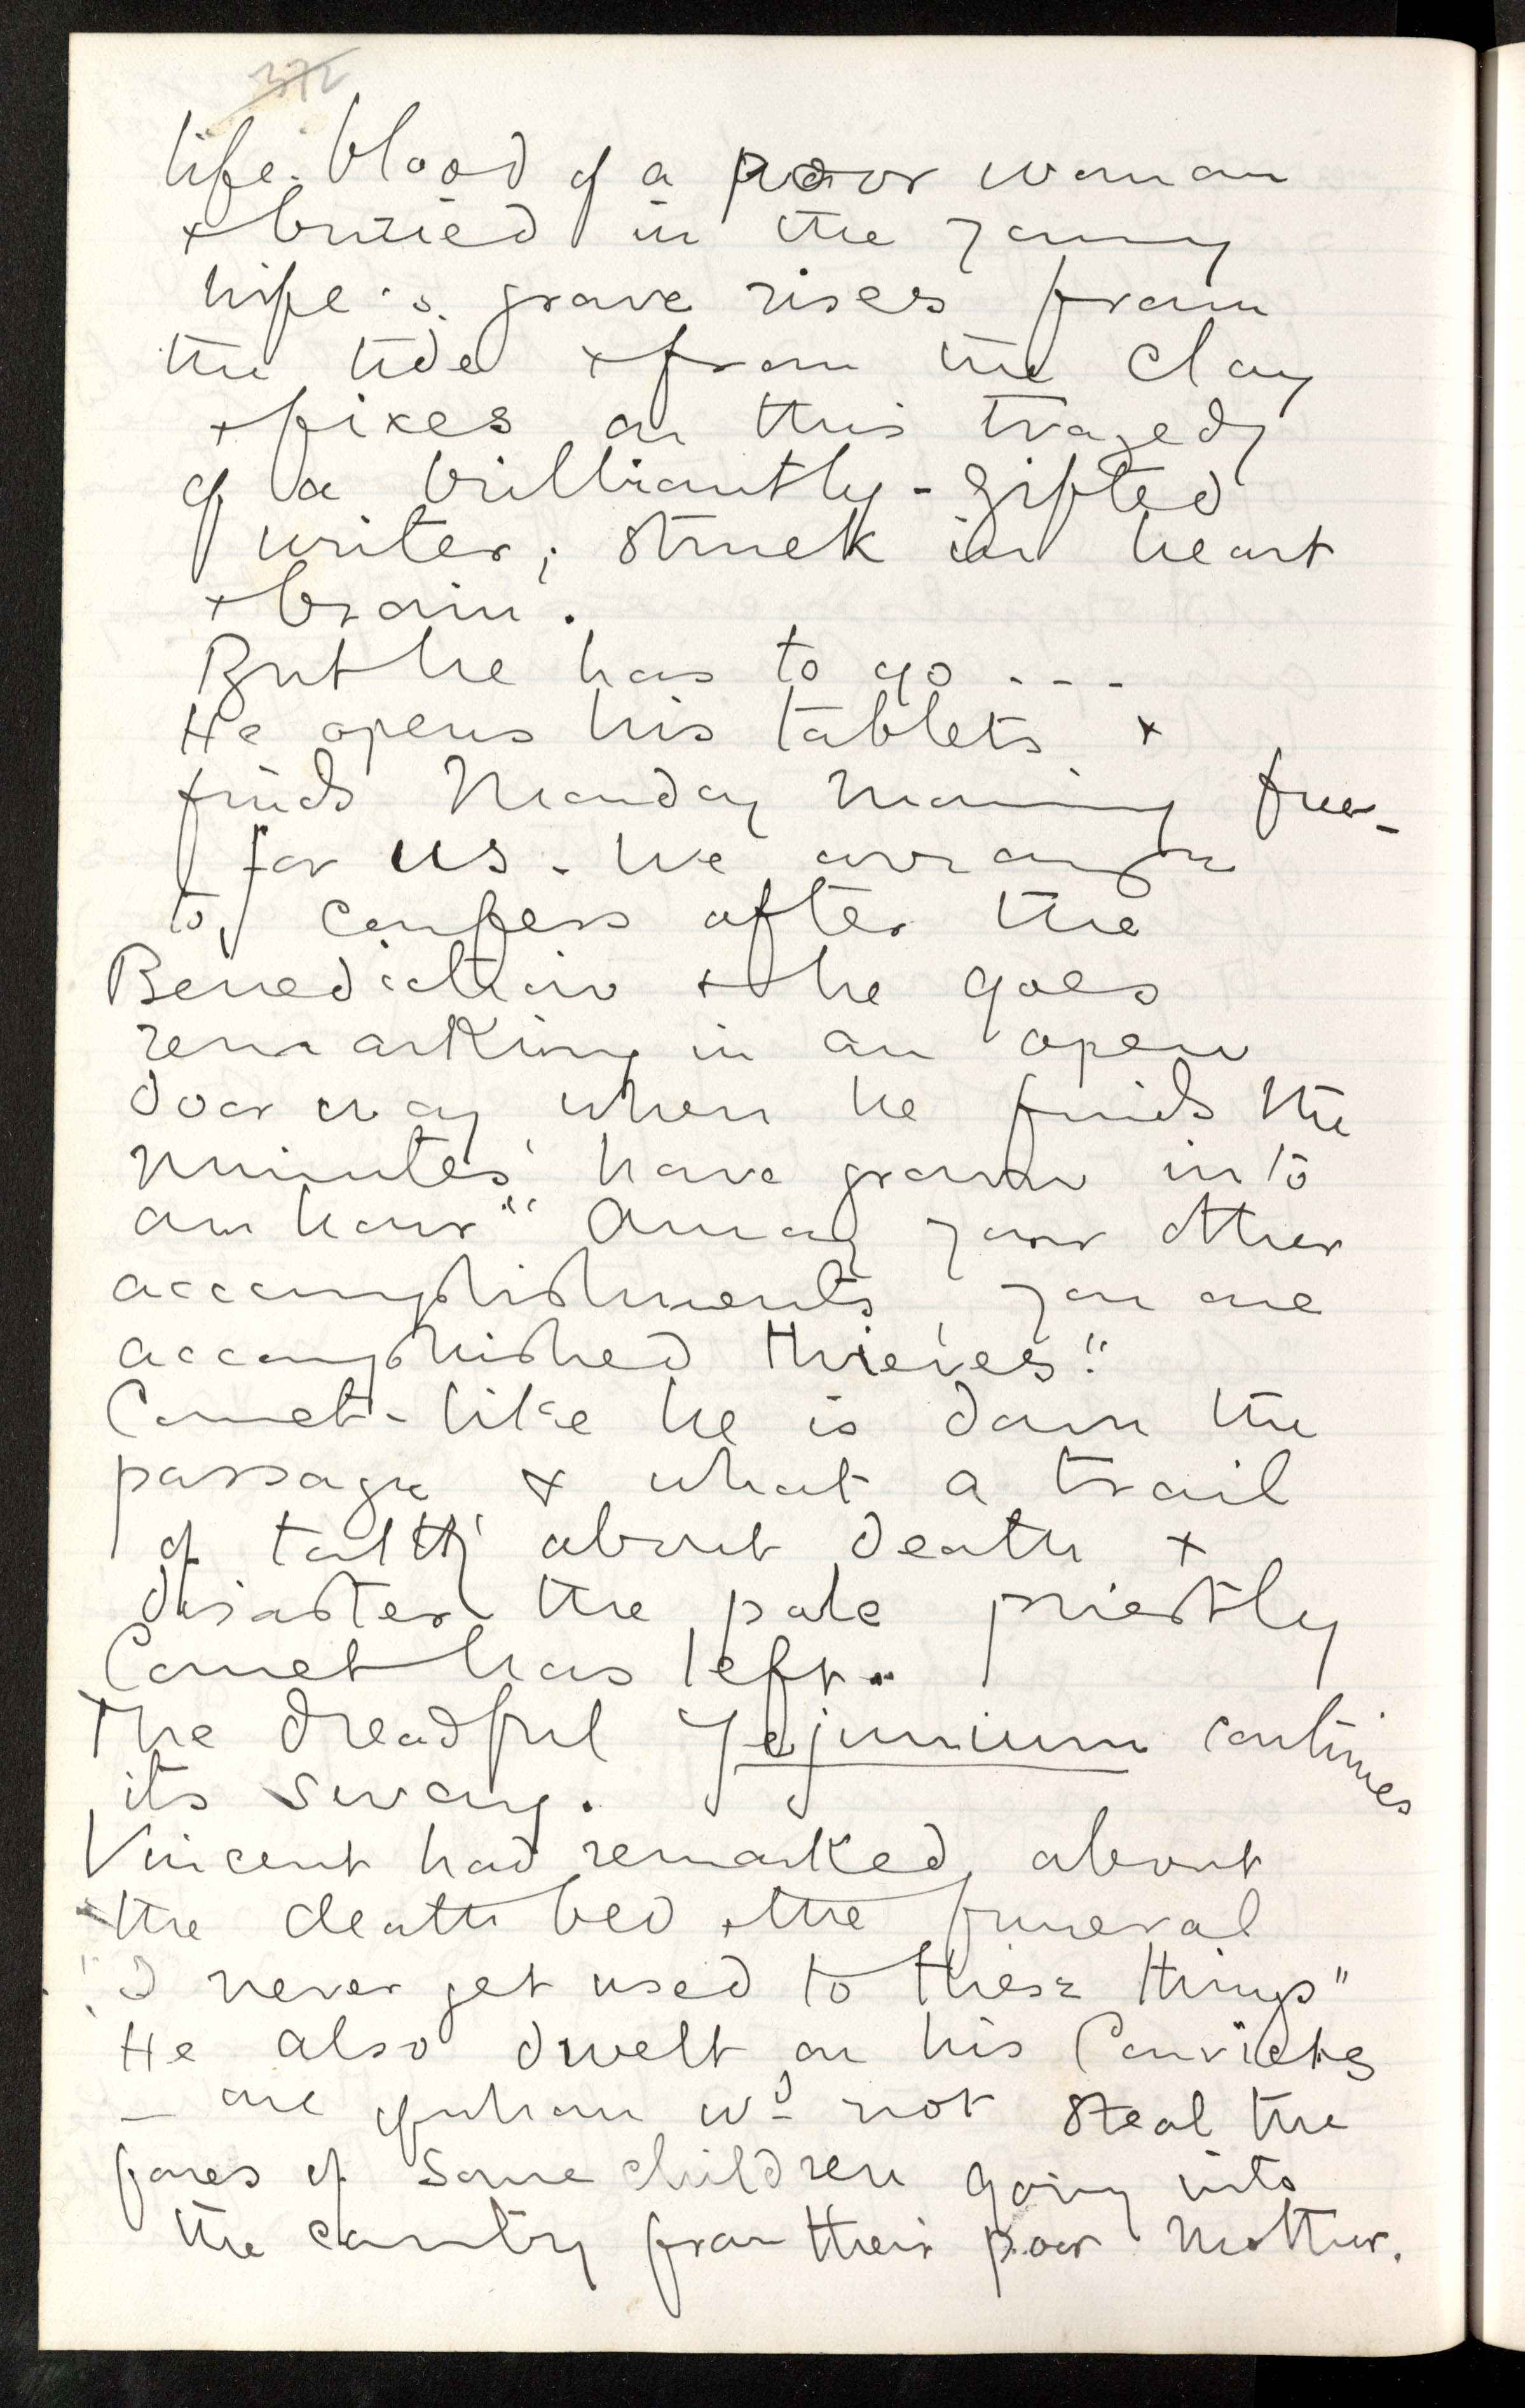 372
life-blood of a poor woman
+ buried in the young
wife's grave rises from
the tide + from the clay
+ fixes on this tragedy
of a brilliantly-gifted
writer, struck in heart
+ brain.
But he has to go - - -
He opens his tablets +
finds Monday morning free
for us. We arrange
to confess after the
Benediction + he goes
remarking in an open
doorway when he finds the
minutes have grown into
an hour "Among your other
accomplishments, you are
accomplished thieves".
Comet-like he is down the
passage + what a trail
of talk about death +
disaster the pale priestly
Comet has left.
The dreadful Jejunium continues
its sway.
Vincent had remarked about
the death bed + the funeral
"I never get used to these things"
He also dwelt on his Convicts
- one of whom wd not steal the
fares of some children going into
the country from their poor Mother.